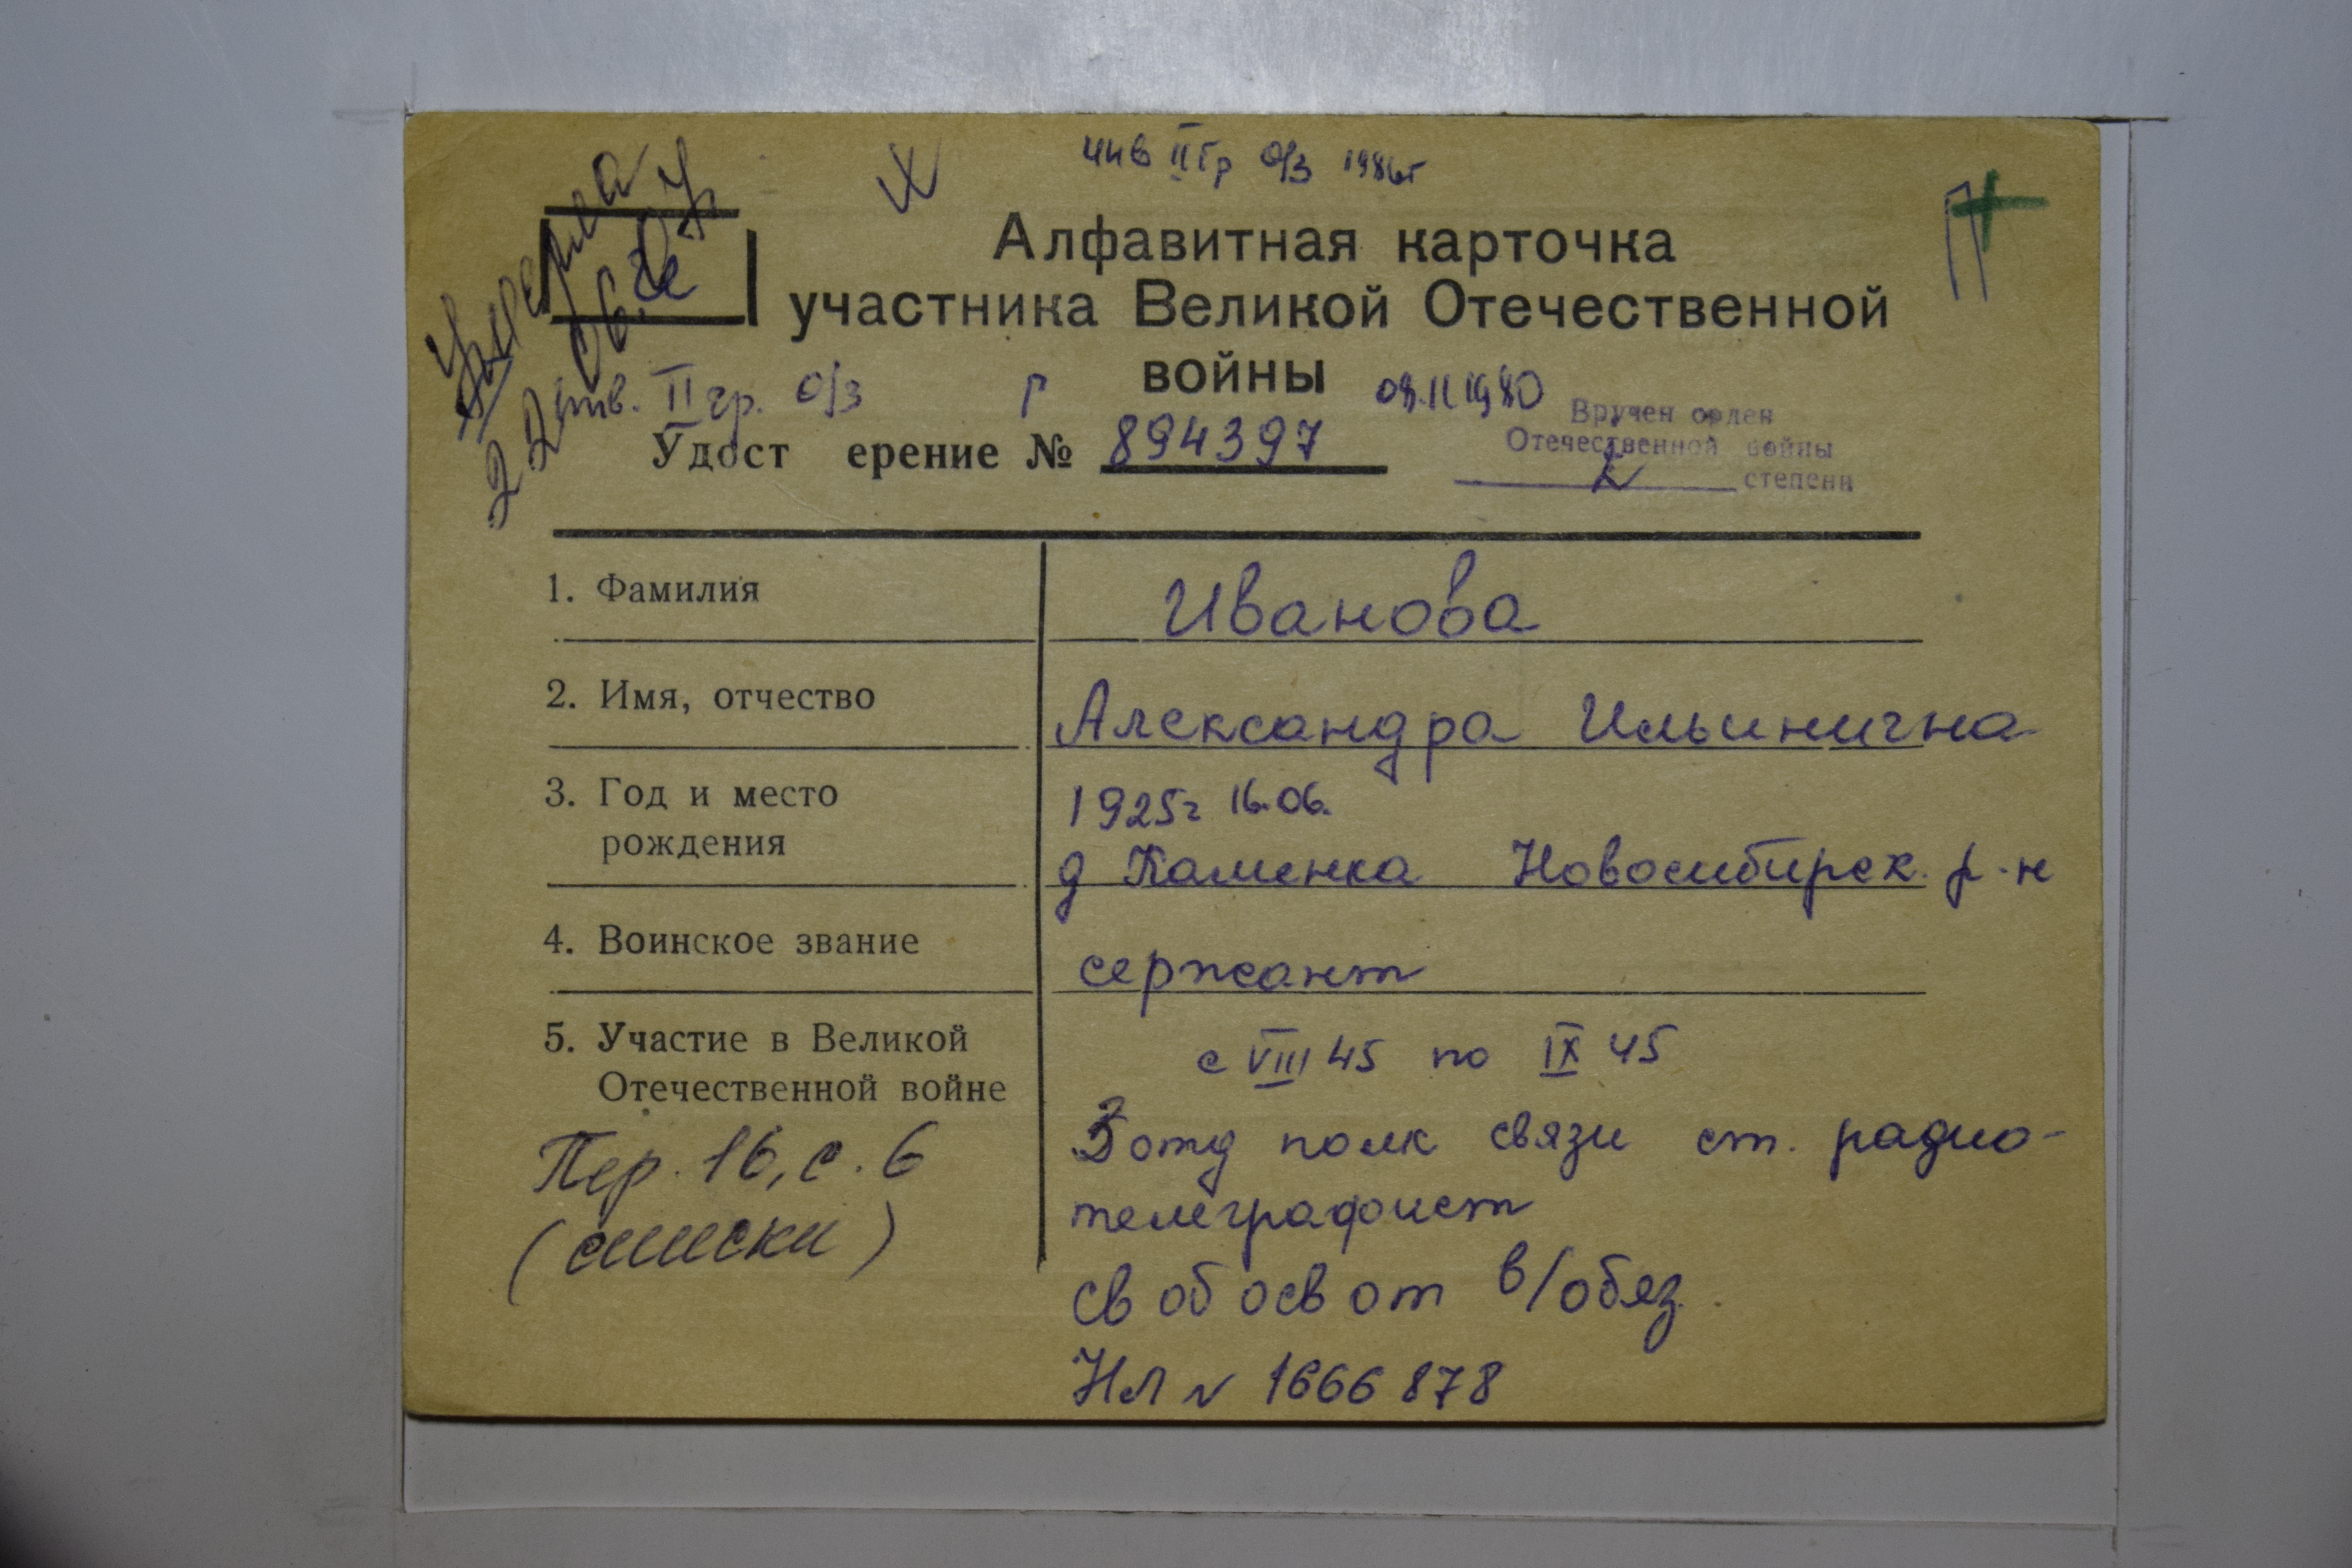 инв II гр о/з 1986г
умерла
22.06.
Алфавитная карточка
участника Великой Отечественной
войны
инв. II гр. о/з г
09.11 1980
Удост ерение № 894397
Вручен орден
Отечественной войны
степени
1. Фамилия Иванова
2. Имя, отчество Александра Ильинична
3. Год и место 1925г 16.06.
рождения д Каменка Новосибирск. р-н
4. Воинское звание сержант
5. Участие в Великой с VIII 45 по IX 45
Отечественной войне
отд полк связи ст. радио-
телеграфист
Пер. 16, с. 6
(списки)
св об осв от в/обяз.
НЛ № 1666878